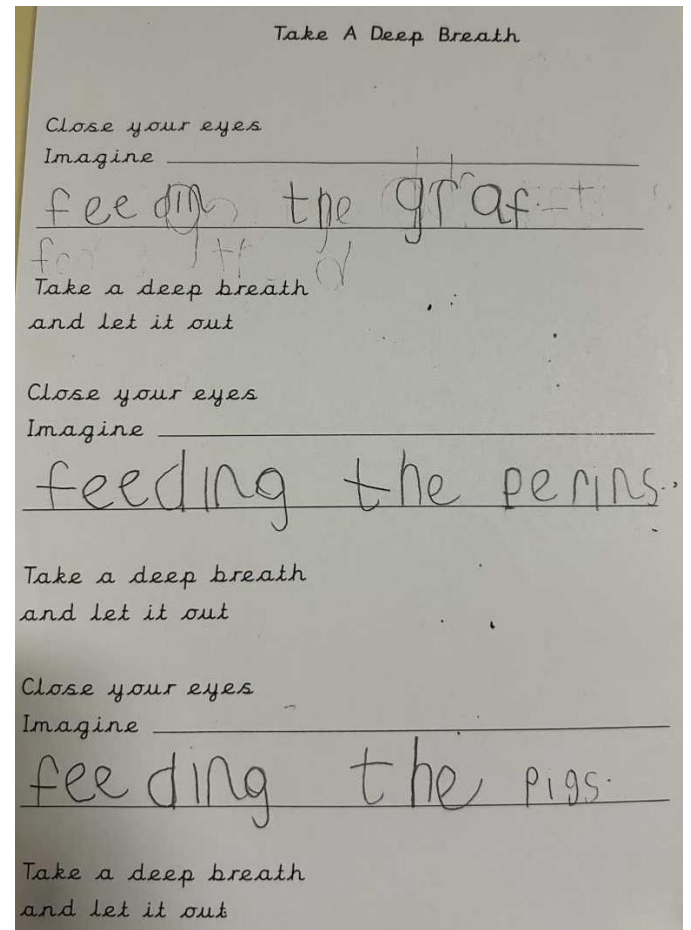 Take A Deep Breath
Close your eyes
Imagine
feeding the graf
Take a deep breath
and let it out
Close your eyes
Imagine
feeding the perins.
Take a deep breath
and let it out
Close your eyes
Imagine
feeding the pigs.
Take a deep breath
and let it out